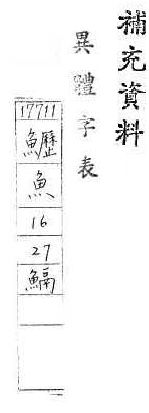 補充資料
異體字表
17711
䰛
魚
16
27
䰛